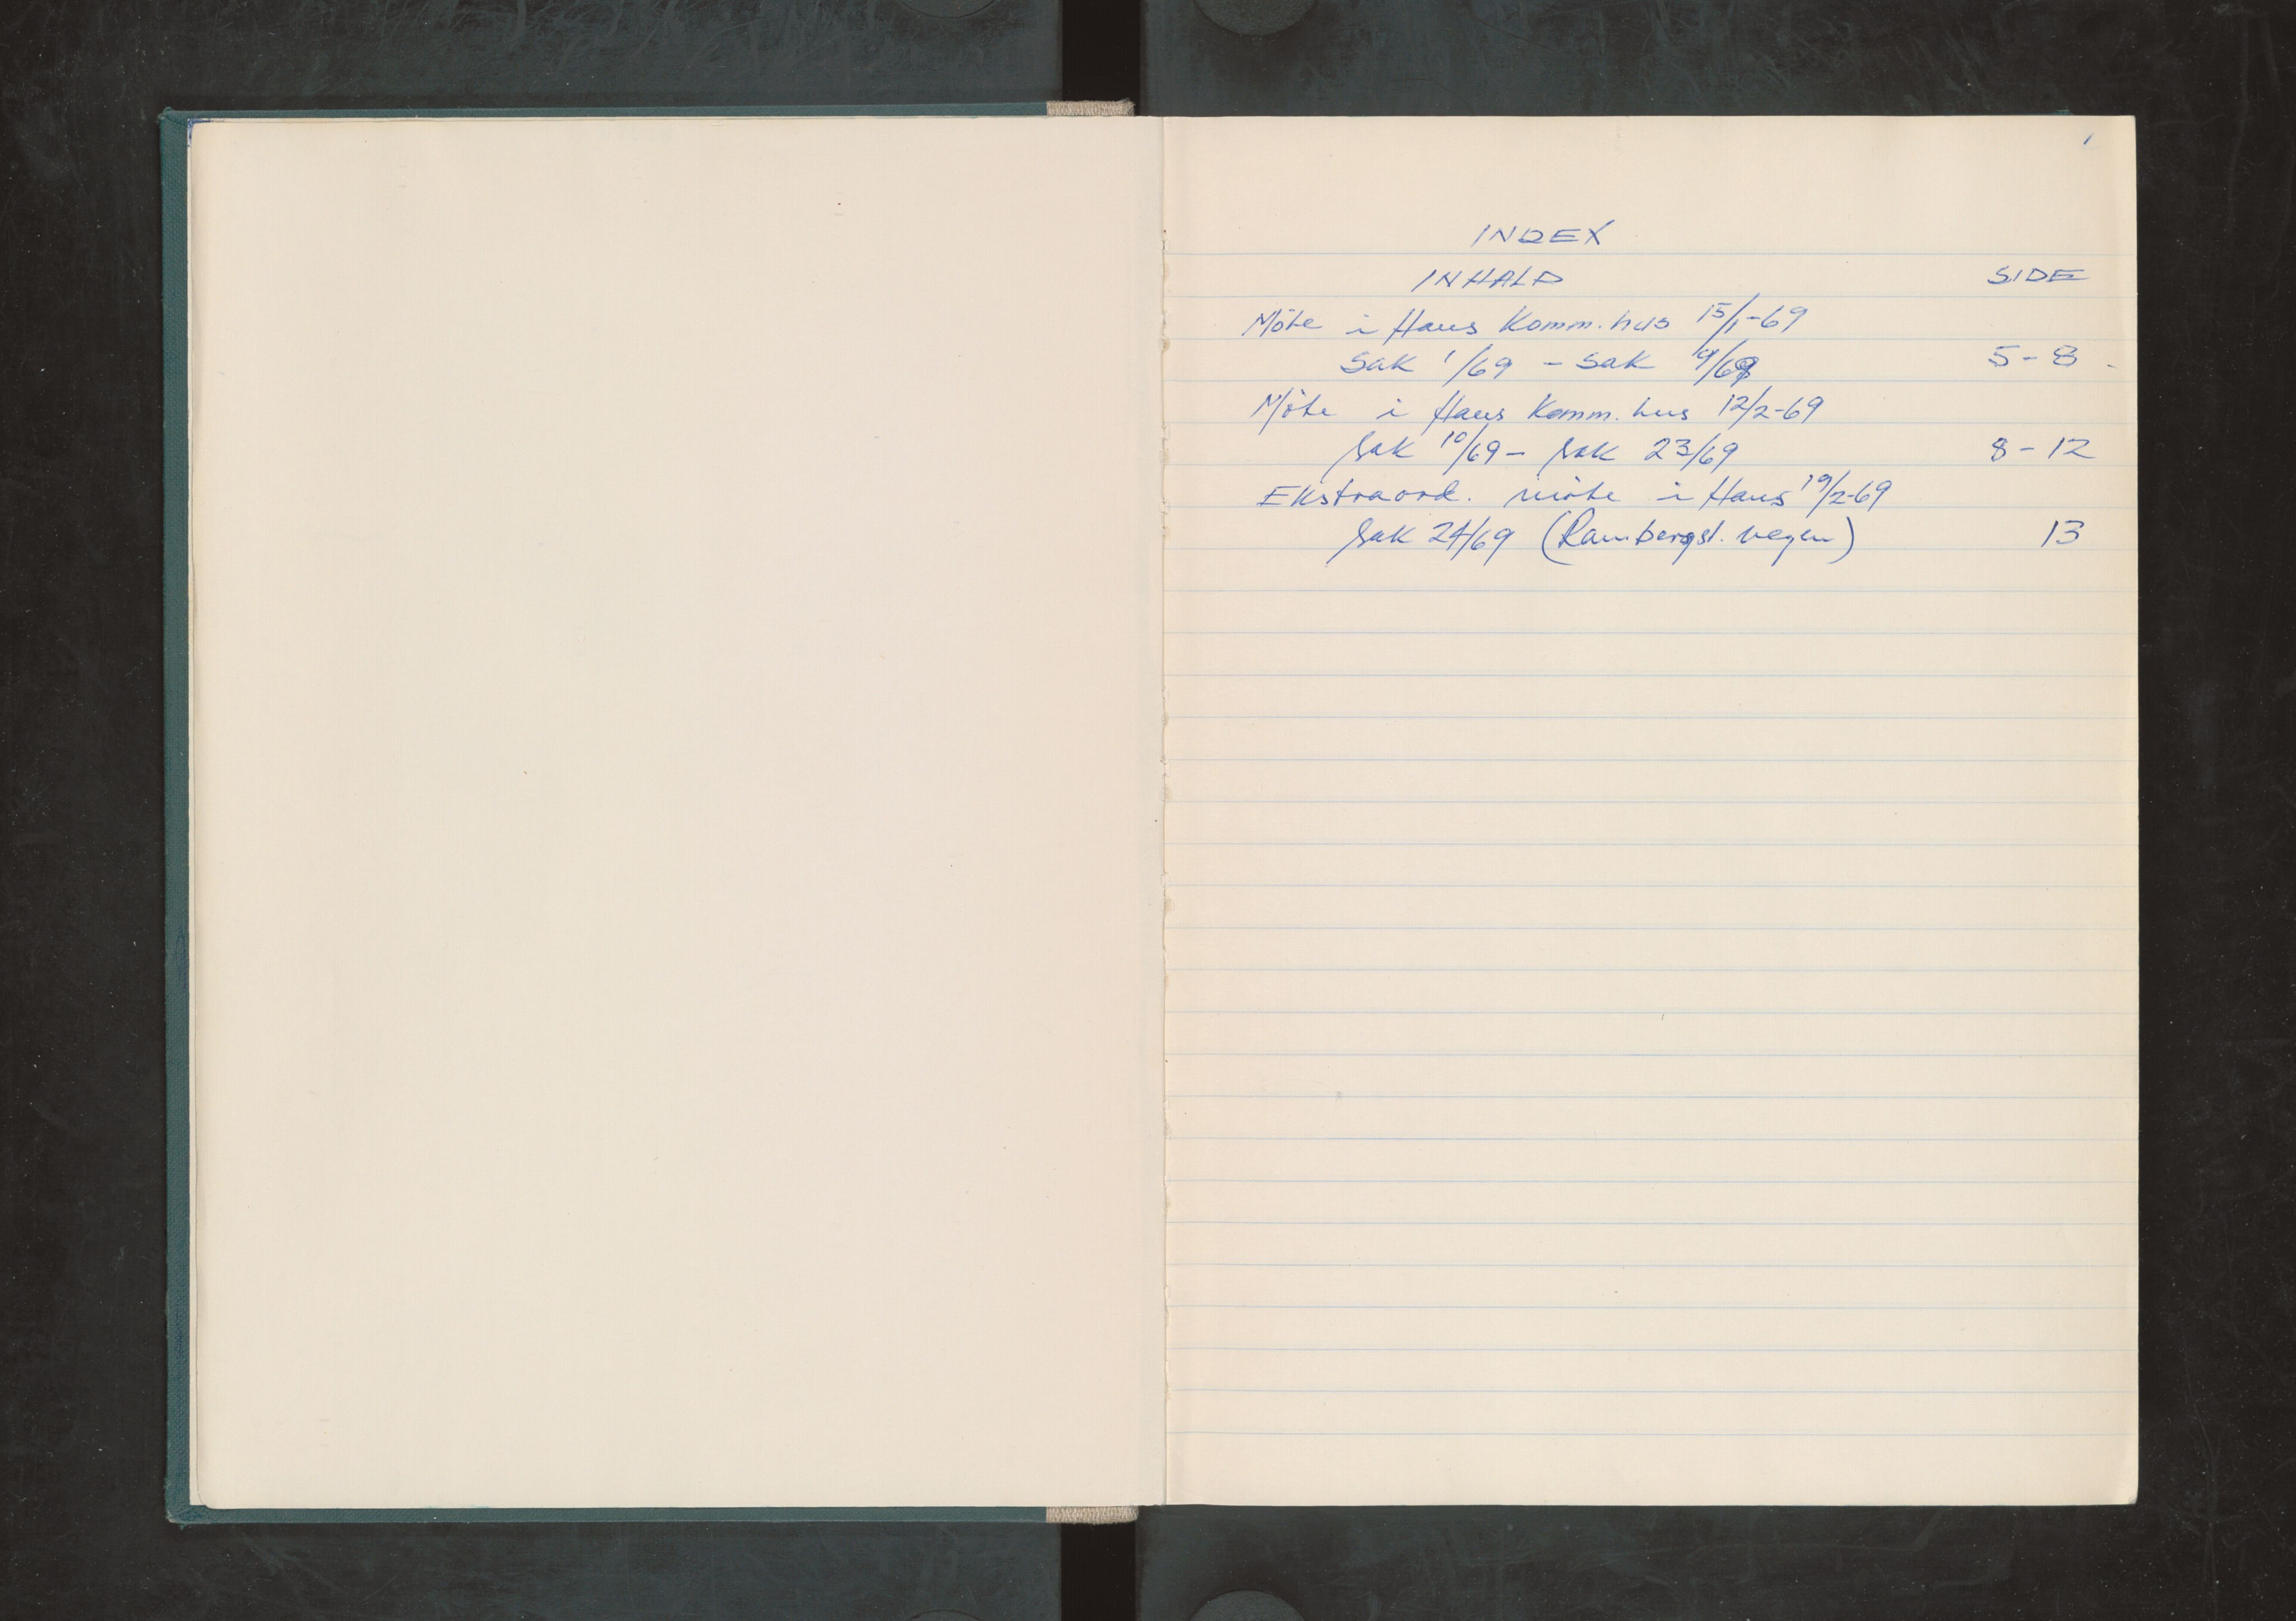 1
INDEX
INHALD SIDE
Möte i Haus Komm. hus 15/1-69
Sak 1/69 - Sak 9/69 5-8
Möte i Haus Komm. hus 12/2-69
Sak 10/69 - Sak 23/69 8-12
Ekstraord. möte i Haus 19/2-69
Sak 24/69 (Rambergst. vegen) 13